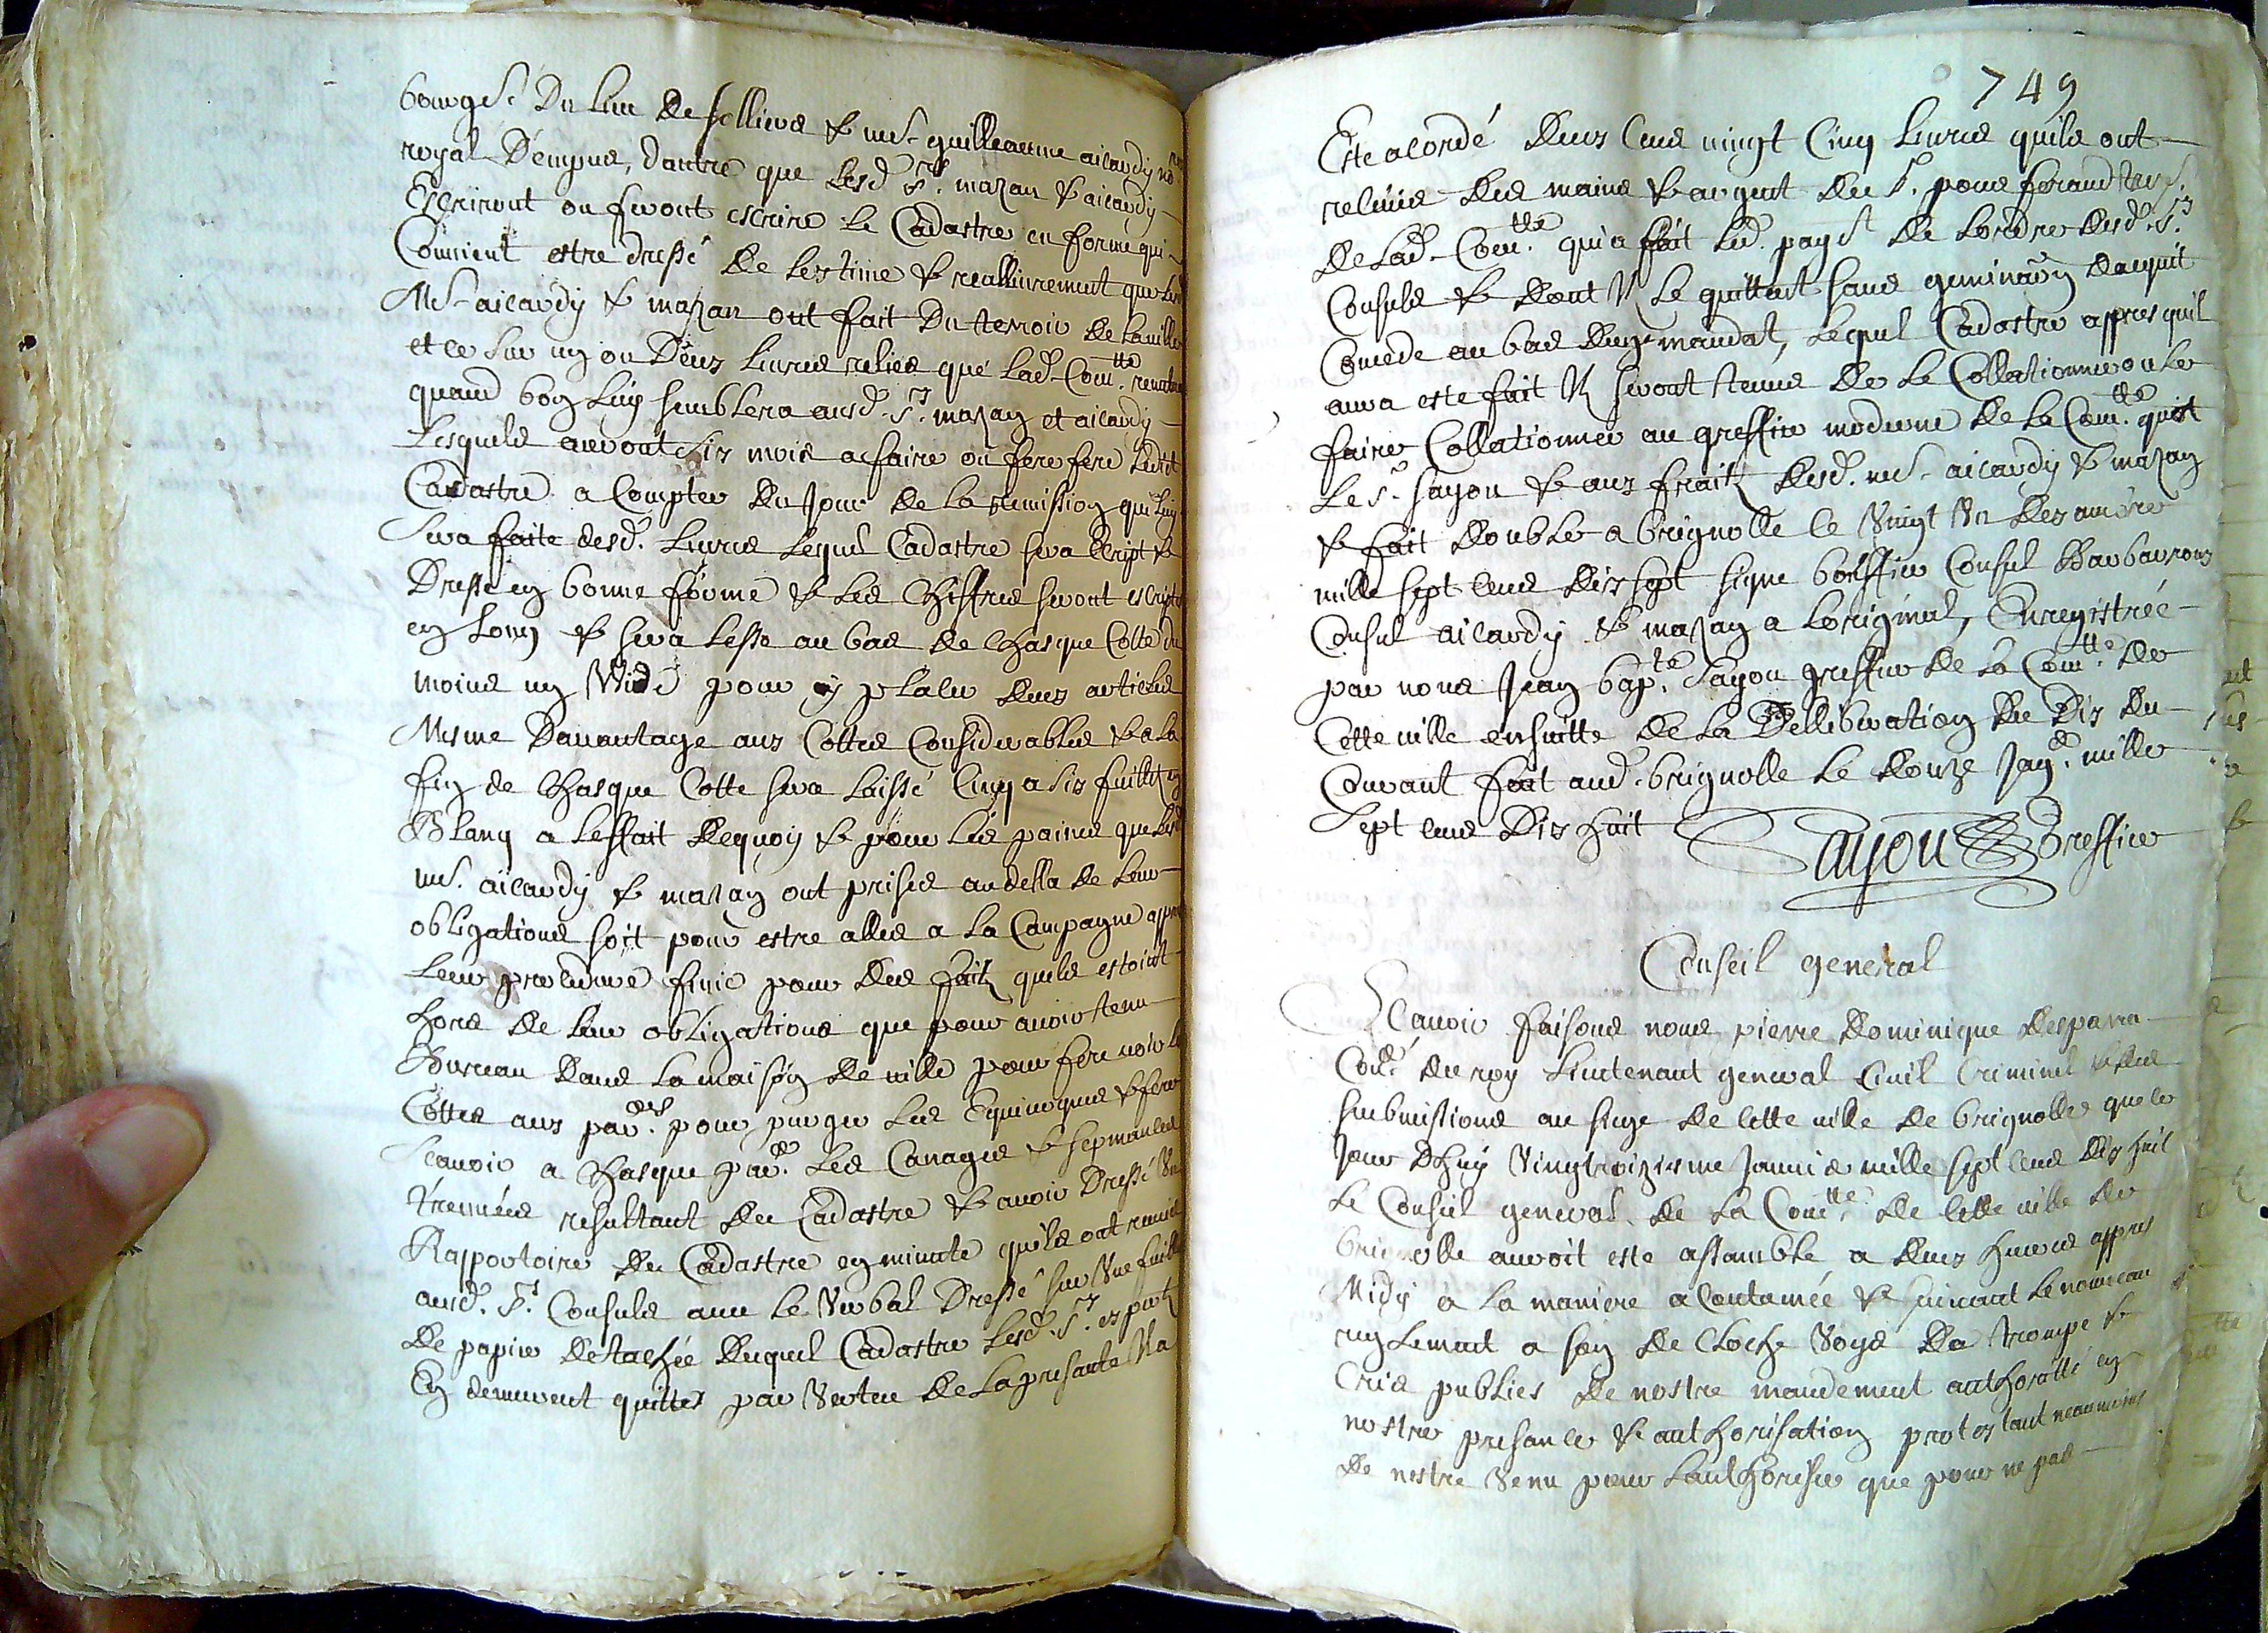 bourg.s Du lieu De sollies & me guilleaume aicardy no.re
royal D'eyguie, dautre que lesd. Srs. mazan & aicardy
Escriront ou feront escrire le Cadastre en forme qui
Convient estre dressé de lestime & reallivrement que lesd
Mes aicardy & mazan ont fait Du terroir de la ville
et ce sur ung ou Deux livres reliés que lad. Com.tté remettra
quand bon luy semblera ausd. Srs. mazan et aicardy
Lesquels auront six mois a faire ou fere fere ledit
Cadastre a Compter du Jour de la remission qui luy
sera faite desd. Livres lequel Cadastre sera escript &
Dressé en bonne forme & les chiffres seront escripts
en Long & sera lessé au bas de chasque Cotte du
moins un vide pour y placer deux articles
Mesme Davantage aux Cottes Considerables & a la
fin de chasque Cotte sera laissé cinq a six fuillets en
Blanq a leffait dequoy & pour les paines que lesd
mes. aicardy & mazan ont prises audella de leur
obligations soit pour estre allés a la Campagne appres
leur procedure finie pour des faits quils estoint
hors de leur obligations que pour avoir tenu
Bureau dans la maison de ville pour fere voir les
Cottes aux par.ers pour purger les Equivoques & fere
scavoir a chasque par.er les Canages & sepmances
trennées resultant du Cadastre & avoir Dressé un
Rapportoire du Cadastre en minute quils ont remis
ausd. Srs. Consuls avec le verbal Dressé sur une fuille
De papier detachée duquel Cadastre lesd. Srs. experts
En demurent quittes par vertu de la presante Ila
749
Esté acordé deux cens vingt Cinq Livres quils ont
receües des mains & argent du Sr. pons feraud tres.r
de lad. Com.tté qui a fait led. pay.t de lordre desd. Srs.
Consuls & dont Ils le quittent sans geminaõn dacquit
Concedé au bas dung mandat, Lequel Cadastre appres quil
aura esté fait Ils seront tenus de le Collationner ou le
faire Collationner au greffier moderne de la Com.tté quest
le Sr. sayou & aux fraits desd. mes. aicardy & mazan
& fait double a brignolle le vingt un dexambre
mille sept cens dix sept signe boeffier Consul Barbarroux
Consul aicardy & mazan a Loriginal, Enregistrée
par nous Jean bap.te sayou greffier de la Com.tté de
Cette ville ensuitte de la Delliberation du dix du
Courant fait aud. brignolle le douze Jan.er mille
sept cens Dix huit Sayou Greffier
Conseil general
Scavoir faisons nous pierre dominique desparra
Con.er du roy lieutenant general civil Criminel & des
submissions au siege de cette ville de brignolle que ce
Jour Dhuy vingtroizieme Janvier mille sept cens dix huit
Le Conseil general de la Com.tté de cette ville de
brignolle auroit esté assamblé a deux heures appres
Midy a la maniere acoutumée & suivant le nouveau
reglement a son de cloche voyes de trompe &
Cries publies de nostre mandement authoratté en
nostre presance & authorisation protestant neanmoins
de nestre venu pour lauthoriser que pour ne pas